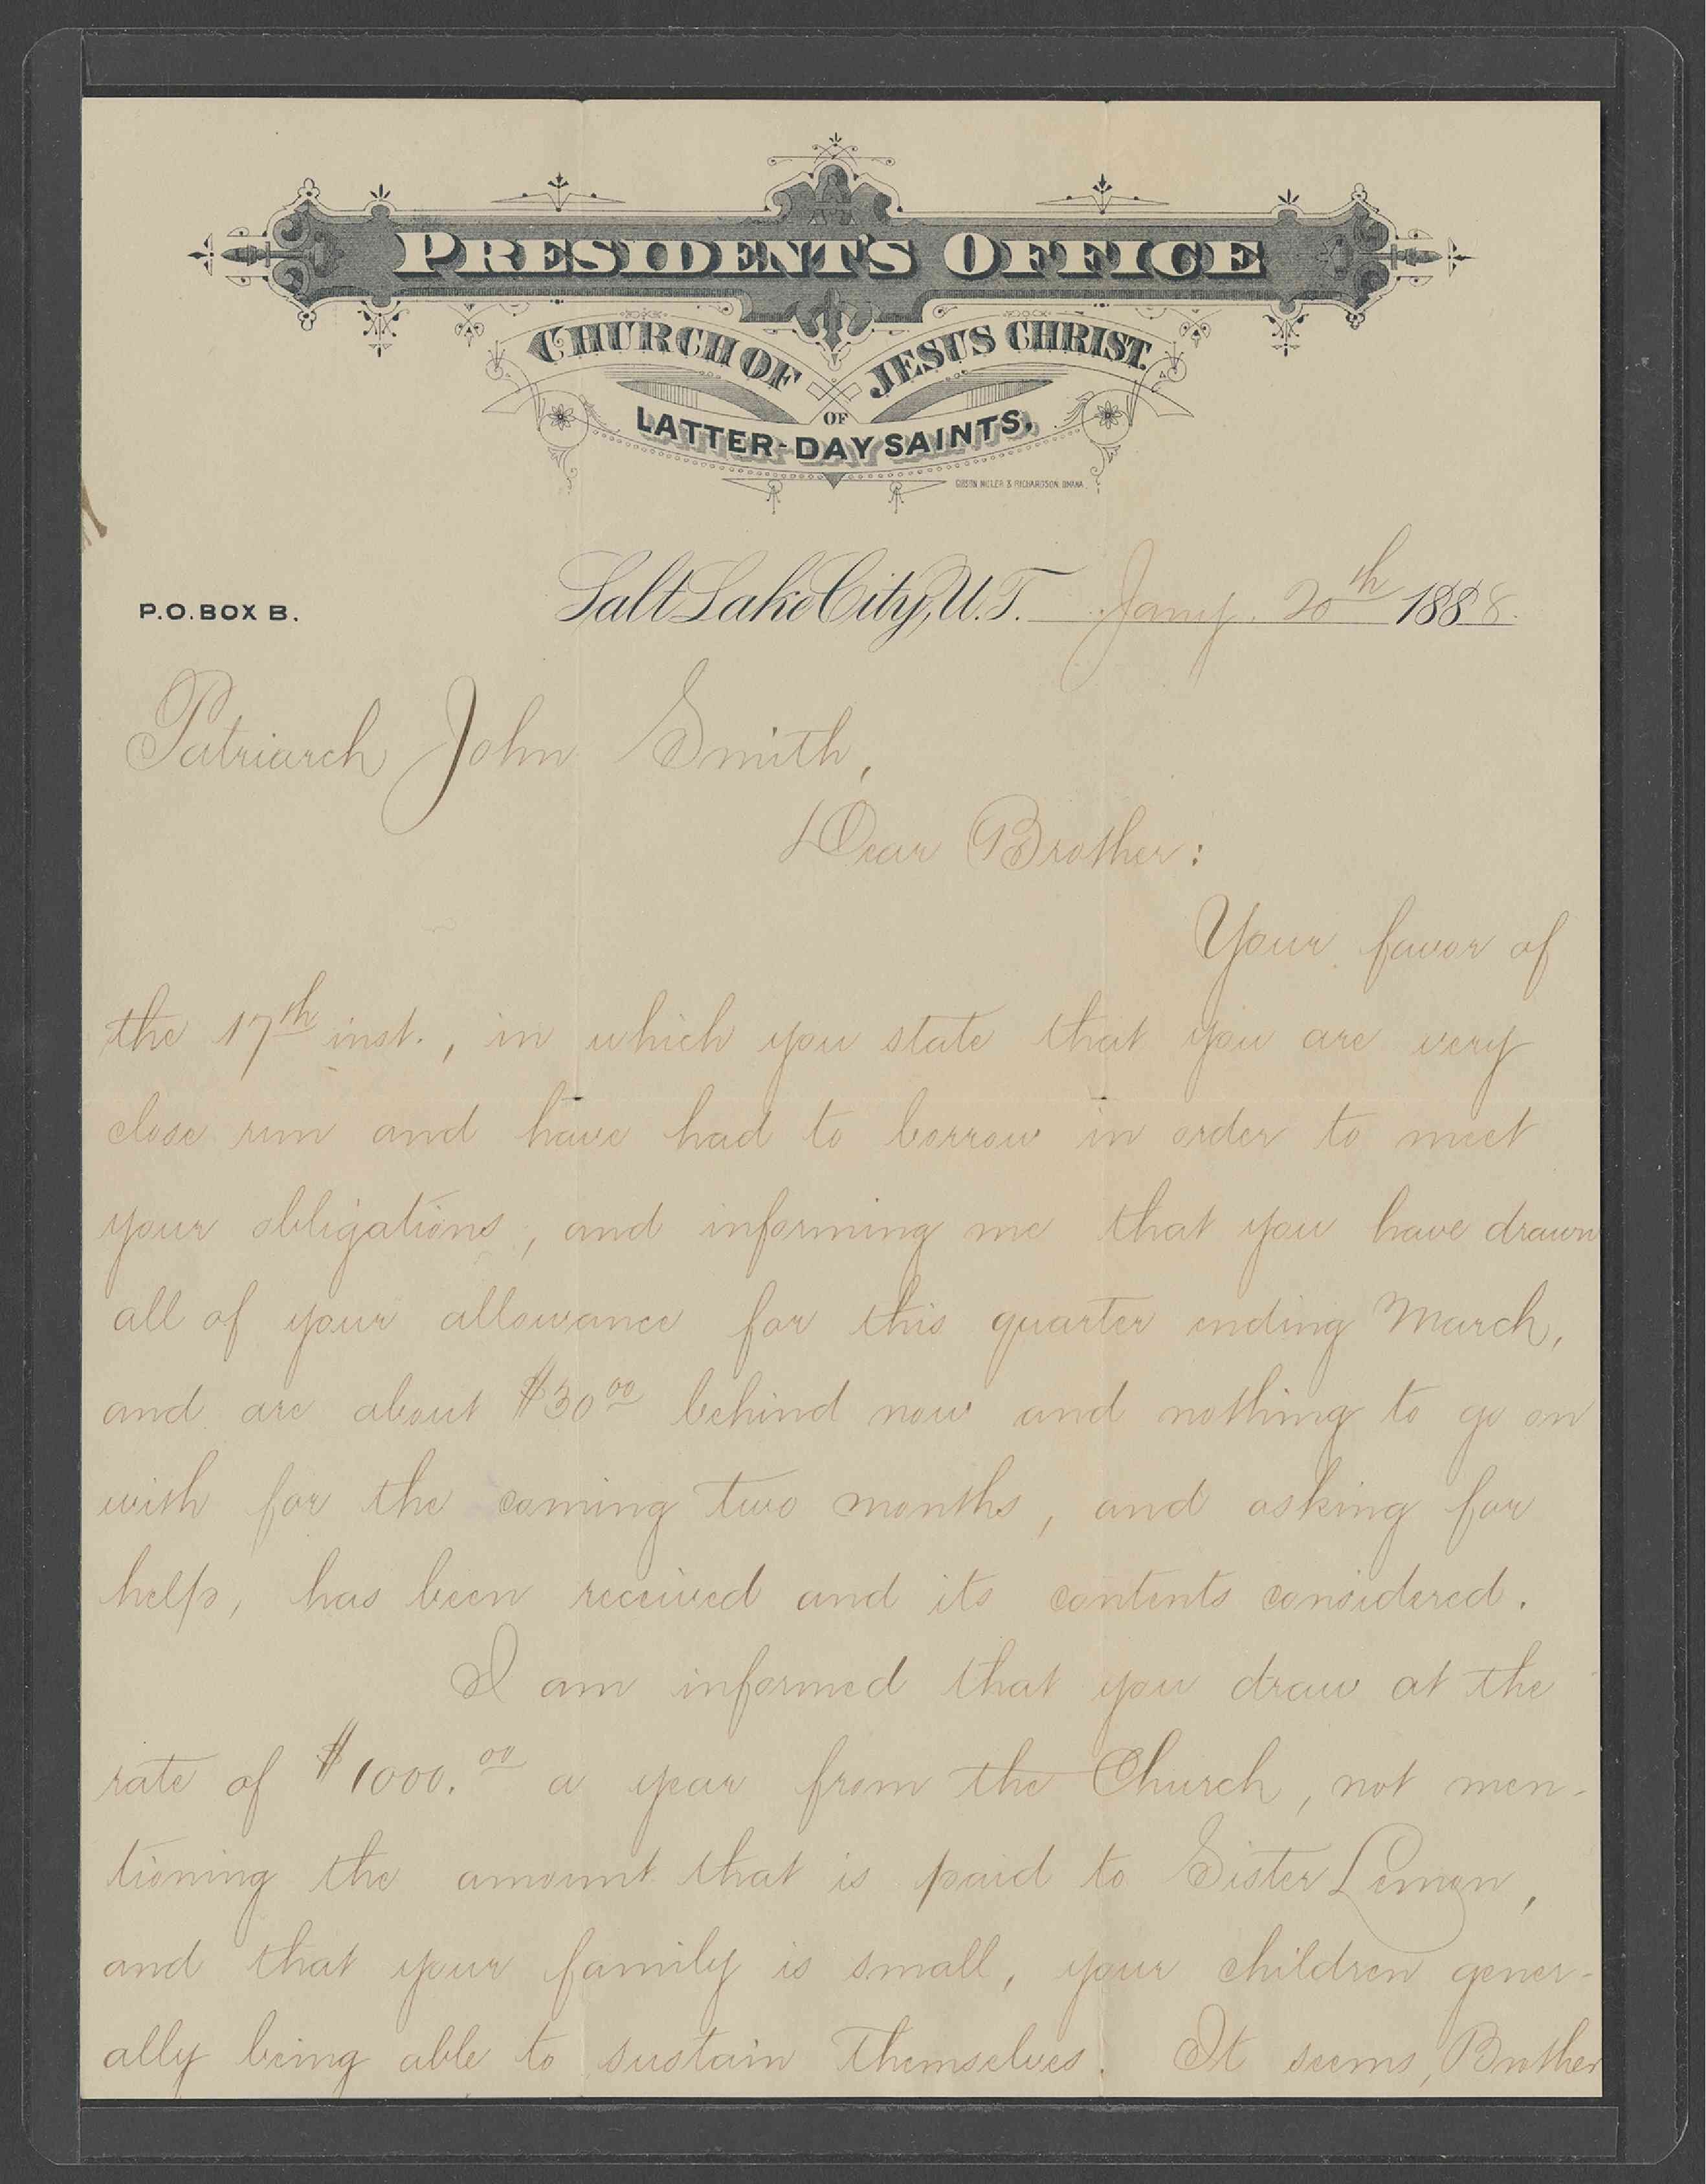 PRESIDENT'S OFFICE
CHURCH OF JESUS CHRIST
OF
LATTER-DAY SAINTS.
GIBSON MILLER & RICHARDSON OMAHA.
P.O. BOX B. Salt Lake City, U.T. Jany. 20th 1888.
Patriarch John Smith,
Dear Brother:
Your favor of
the 17th inst., in which you state that you are very
close run and have had to borrow in order to meet
your obligations, and informing me that you have drawn
all of your allowance for this quarter ending March,
and are about $30 00 behind now and nothing to go on
with for the coming two months, and asking for
help, has been received and its contents considered.
I am informed that you draw at the
rate of $1000. 00 a year from the Church, not men-
tioning the amount that is paid to Sister Lemon,
and that your family is small, your children gener-
ally being able to sustain themselves. It seems, Brother